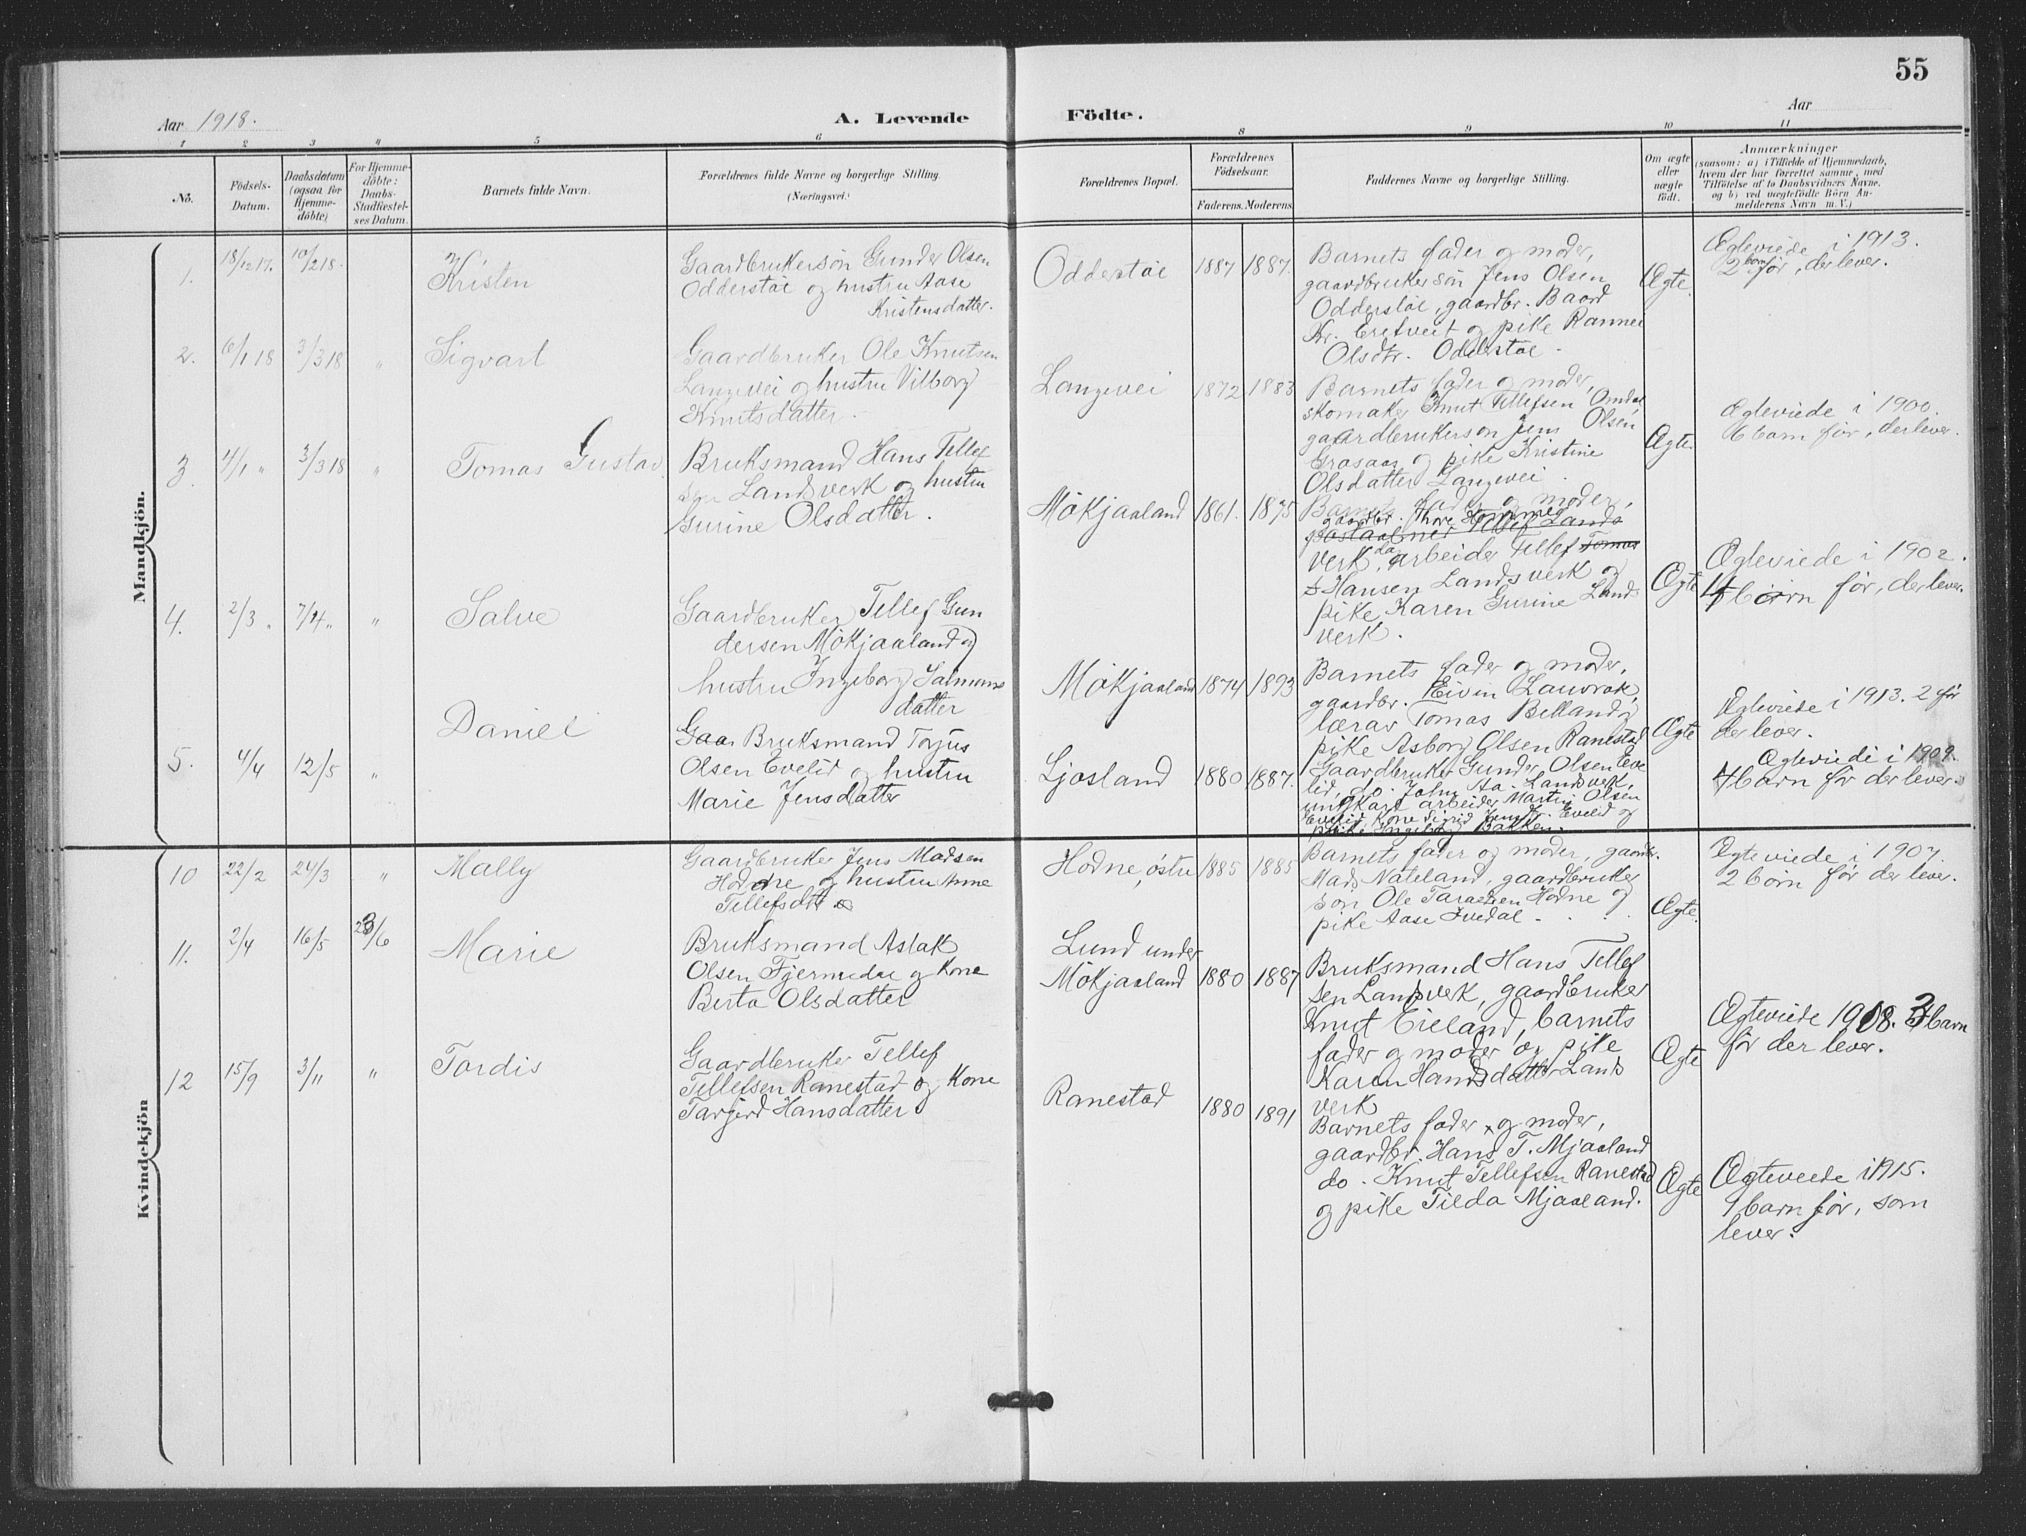 55
Aar 1918.
A. Levende
Födte.
Aar
1 2 3 4 5 6 8 9 10 11
No.
Födsels-
Datum.
Daabsdatum
(ogsaa for
Hjemme-
döbte)
For Hjemme-
döbte:
Daabs-
Stadfæstel-
ses Datum.
Barnets fulde Navn.
Forældrenes fulde Navne og borgerlige Stilling.
(Næringsvei.)
Forældrenes Bopæl.
Forældrenes
Födselsaar.
Faderens. Moderens.
Faddernes Navne og borgerlige Stilling.
Om ægte
eller
uægte
födt.
Anmærkninger
(saasom: a) i Tilfælde af Hjemmedaab,
hvem der har forrettet samme, med
Tilföielse af to Daabsvidners Navne,
og b) ved uægtefödte Börn An-
melderens Navn m. V.)
Mandkjön.
1. 18/12 17. 10/2 18. Kristen
Gaardbrukersön Gunder Olsen
Odderstøl og hustru Aase
Kristensdatter.
Odderstøl 1887 1887.
Barnets fader og moder,
gaardbrukersön Jens Olsen
Odderstøl, gaardbr. Baard
Kr. Eretveit og pike Rannei
Olsdtr. Odderstøl.
Ægte.
Ægteviede i 1913.
2 barn før, der lever.
2. 6/1 18 3/3 18 " Sigvart
Gaardbruker Ole Knutsen
Langevei og hustru Vilborg
Knutsdatter.
Langevei 1872 1883
Barnets fader og moder,
skomaker Knut Tellefsen Omdal
gaardbrukersøn Jens Olsen
Grosaas og pike Kristine
Olsdatter Langevei.
Ægte.
Ægteviede i 1900.
6 barn før, der lever.
3. 4/1 " 3/3 18 " Tomas Gustav
Bruksmand Hans Tellef
sen Landsverk og hustru
Gurine Olsdatter.
Mökjaaland 1861. 1875
Barnets fader og moder,
gaardbr. Thore
verk, arbeider Tellef Tomas
Hansen Landsverk og
pike Karen Gurine Lands
verk.
Ægte
Ægteviede i 1902.
4 börn før, der lever.
4. 2/3 " 7/4 " " Salve
Gaardbruker Tellef Gun
dersen Mökjaaland og
hustru Ingeborg Salmons
datter
Mökjaaland 1874 1893
Barnets fader og moder,
gaardbr. Eivin Lauvrak,
lærar Tomas Belland og
pike Asborg Olsen Ranestad
Ægte
Ægteviede i 1913. 2 før
der lever.
5. 4/4 12/5 " Daniel
Gaar Bruksmand Torjus
Olsen Evelid og hustru
Marie Jensdatter
Ljosland 1880 1887.
Gaardbruker Gunder Olsen Eve
lid, do. John Aa. Landsverk,
ungkarl arbeider Martin Olsen
Evelid, Kone Sigrid Jensdtr. Evelid og
pike Ingeborg Bakken.
Ægteviede i 1909.
4 barn før der lever.
Kvindekjön
10 22/2 24/3 " Mally
Gaardbruker Jens Madsen
Hodne og hustru Anne
Tellefsdtr
Hodne, østre 1885 1885
Barnets fader og moder, gaardbr.
Mads Nateland, gaardbruker
søn Ole Taraldsen Hodne og
pike Aase Ivedal.
Ægte.
Ægteviede i 1907.
2 börn før der lever.
11. 2/4 16/5 23/6 Marie
Bruksmand Aslak
Olsen Fjermedal og Kone
Berta Olsdatter
Lund under
Mökjaaland 1880 1887
Bruksmand Hans Tellef
sen Landsverk, gaardbruker
Knut Eieland, barnets
fader og moder og pike
Karen Hansdatter Lands
verk
Ægte
Ægteviede 1908. 3 barn
før der lever.
12 15/9 3/11 " Tordis
Gaardbruker Tellef
Tellefsen Ranestad og Kone
Targjerd Hansdatter
Ranestad 1880 1891
Barnets fader og moder,
gaardbr. Hans T. Mjaaland
do. Knut Tellefsen Ranestad
og pike Tilda Mjaaland.
Ægte
Ægteviede i 1915.
1 barn før, som
lever.